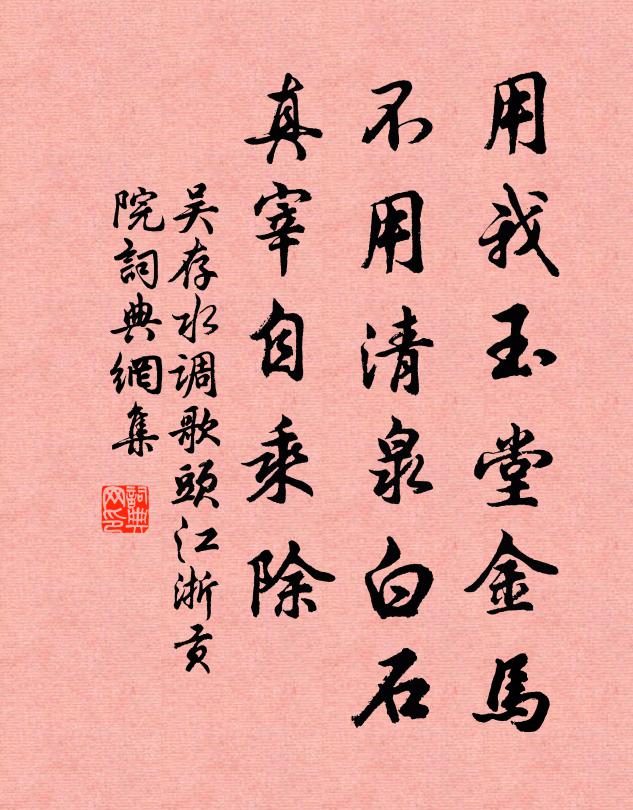 用我玉堂金馬
不用清泉白石
真宰自乘除
吴存水调歌頭江浙贡
院詞典網集
詞典网印